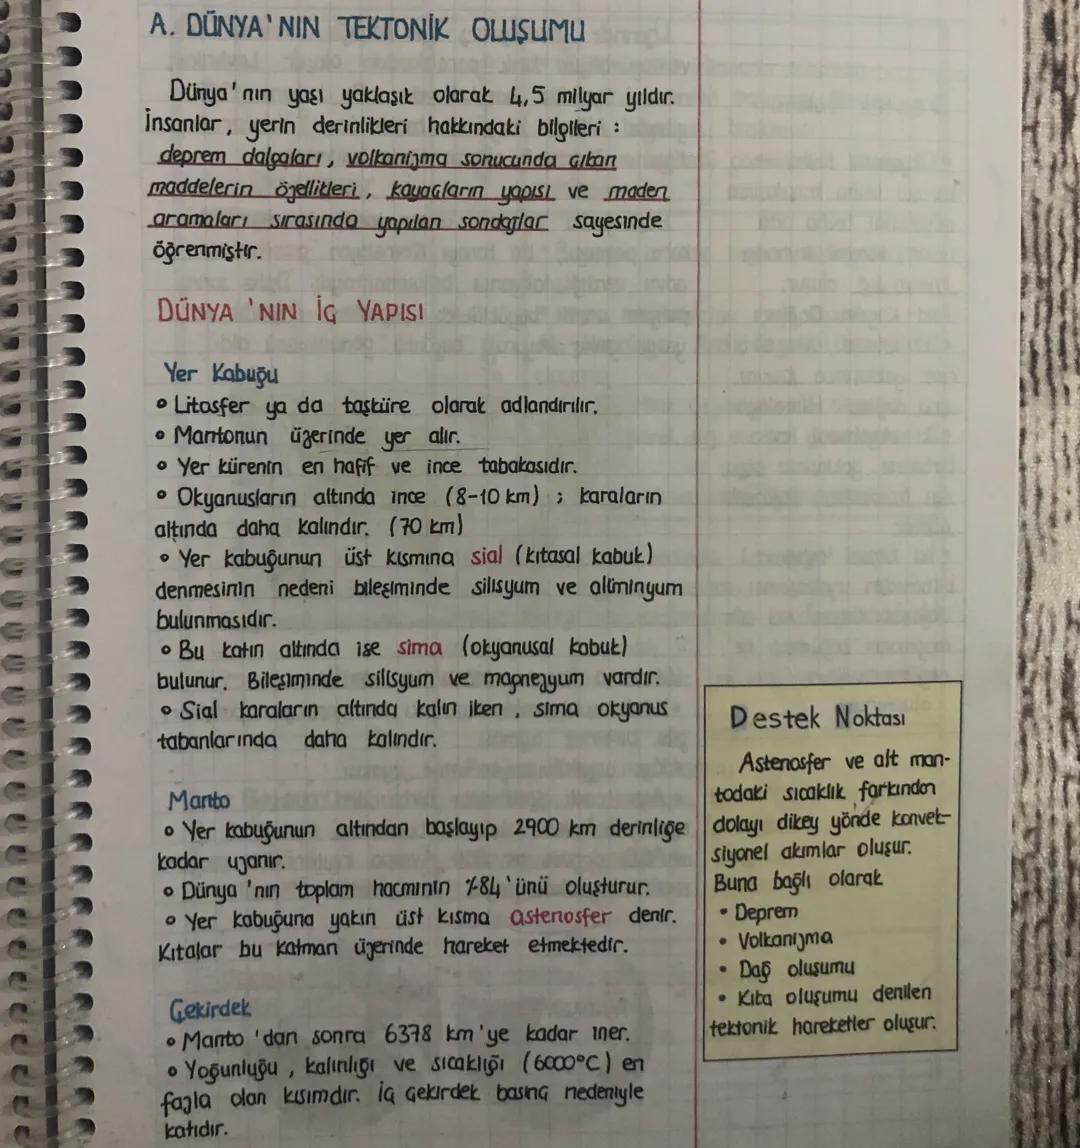 A. DÜNYA'NIN TEKTONİK OLUŞUMU
Dünya'nın yaşı yaklaşık olarak 4,5 milyar yıldır.
İnsanlar, yerin derinlikleri hakkındaki bilgileri :
deprem dalgaları, volkanizma sonucunda çıkan
maddelerin özellikleri, kayaçların yapısı ve maden
aramaları sırasında yapılan sondajlar sayesinde
öğrenmiştir.
DÜNYA'NIN İÇ YAPISI
Yer Kabuğu
• Litosfer ya da taşküre olarak adlandırılır.
• Mantonun üzerinde yer alır.
• Yer kürenin en hafif ve ince tabakasıdır.
• Okyanusların altında ince (8-10 km) ; karaların
altında daha kalındır. (70 km)
• Yer kabuğunun üst kısmına sial (kıtasal kabuk)
denmesinin nedeni bileşiminde silisyum ve alüminyum
bulunmasıdır.
• Bu katın altında ise sima (okyanusal kabuk)
bulunur. Bileşiminde silisyum ve magnezyum vardır.
• Sial karaların altında kalın iken, sima okyanus
tabanlarında daha kalındır.
Manto
• Yer kabuğunun altından başlayıp 2900 km derinliğe
kadar uzanır.
• Dünya'nın toplam hacminin %84'ünü oluşturur.
• Yer kabuğuna yakın üst kısma astenosfer denir.
Kıtalar bu katman üzerinde hareket etmektedir.
Çekirdek
• Manto'dan sonra 6378 km'ye kadar iner.
• Yoğunluğu, kalınlığı ve sıcaklığı (6000°C) en
fazla olan kısımdır. İç çekirdek basınç nedeniyle
katıdır.
Destek Noktası
Astenosfer ve alt man-
todaki sıcaklık farkından
dolayı dikey yönde konvek-
siyonel akımlar oluşur.
Buna bağlı olarak
• Deprem
• Volkanizma
• Dağ oluşumu
• Kıta oluşumu denilen
tektonik hareketler oluşur.